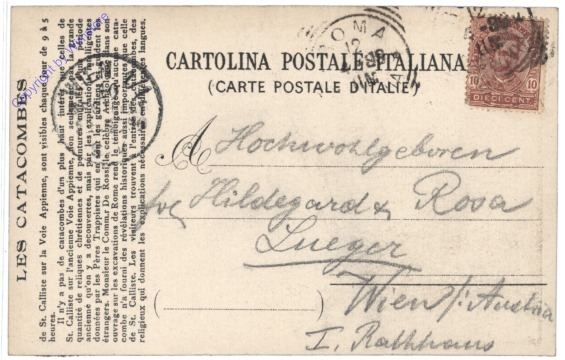 LES CATACOMBES
de St. Calliste sur la Voie Appienne, sont visibles chaque jour de 9 à 5
heures.
Il n'y a pas de catacombes d'un plus haut intérêt que celles de
St. Calliste sur l'ancienne Voie Appienne, non seulement par la grande
quantité de reliques chrétiennes et de peintures murales de la période
ancienne qu'on y a découvertes, mais par les explications intelligentes
données par les Pères Trappistes qui en sont les gardiens et guident les
étrangers. Monsieur le Comm.r De Rossi, le célèbre Archéologue, dans son
ouvrage sur les excavations de Rome rend le témoignage qu'aucune cata-
combe n'a fourni des révélations historiques aussi importantes que celle
de St. Calliste. Les visiteurs trouvent à l'entrée des catacombes, des
religieux qui donnent les explications nécessaires en plusieurs langues.
Copyright by
ROMA
12
98
CARTOLINA POSTALE ITALIANA
(CARTE POSTALE D'ITALIE)
10 10
DIECI CENT.
A Hochwohlgeboren
Hildegard & Rosa
Lueger
Wien /: Austria
I. Rathhaus